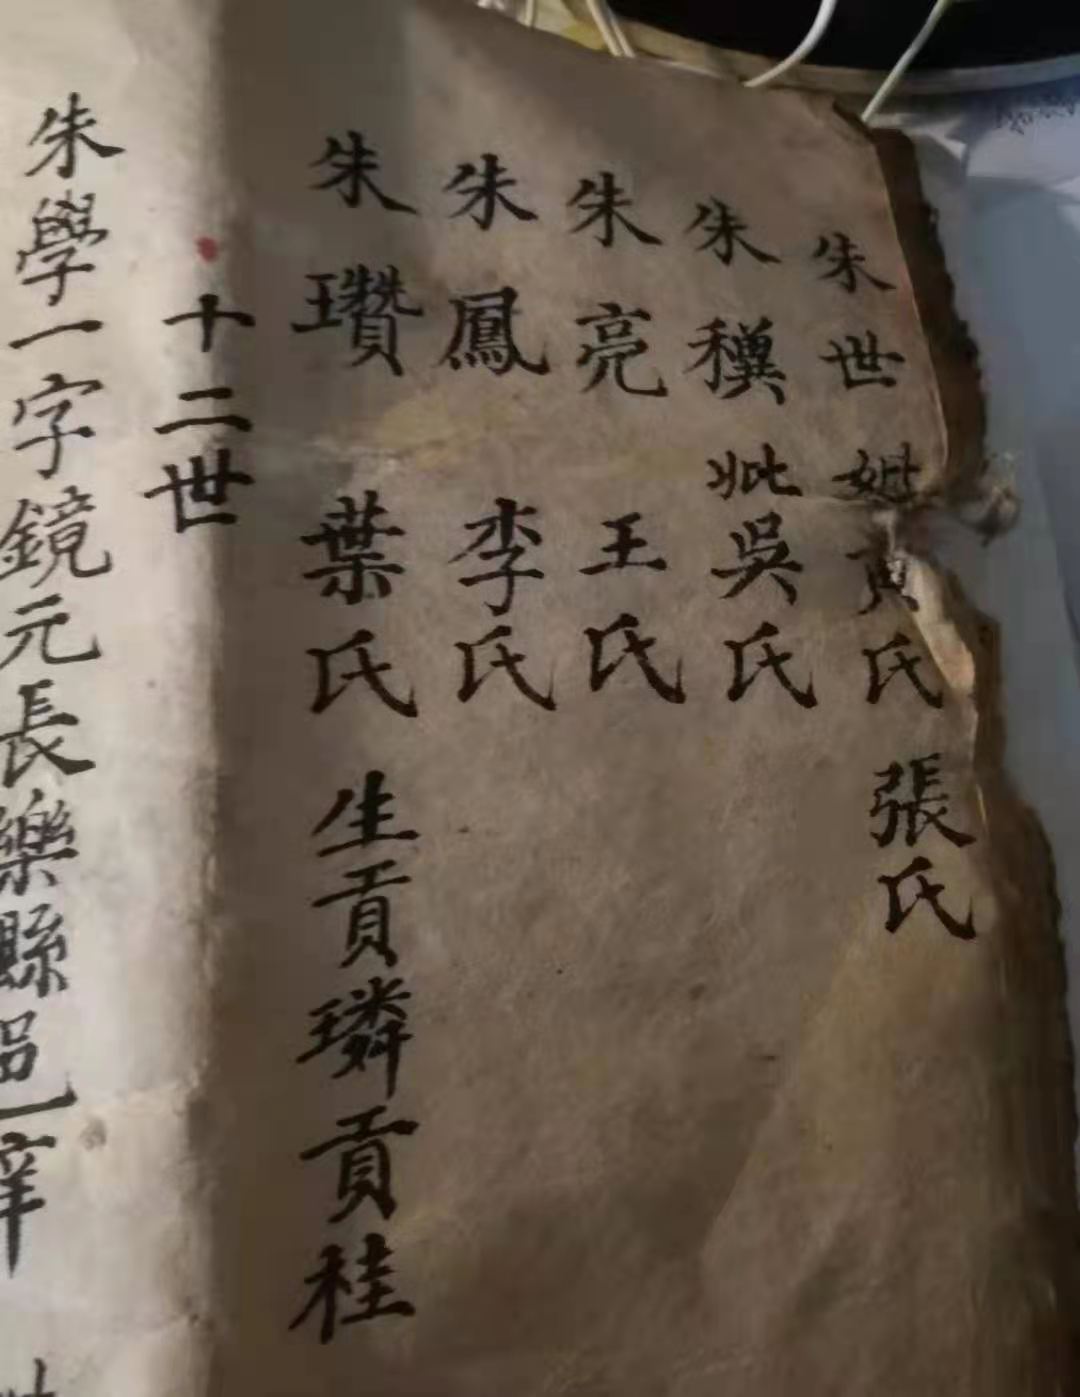 朱世妣黄氏張氏
朱穓妣吳氏
朱亮王氏
朱鳳李氏
朱瓚葉氏生貢璘貢桂
十二世
朱學一字鏡元長樂縣邑庠